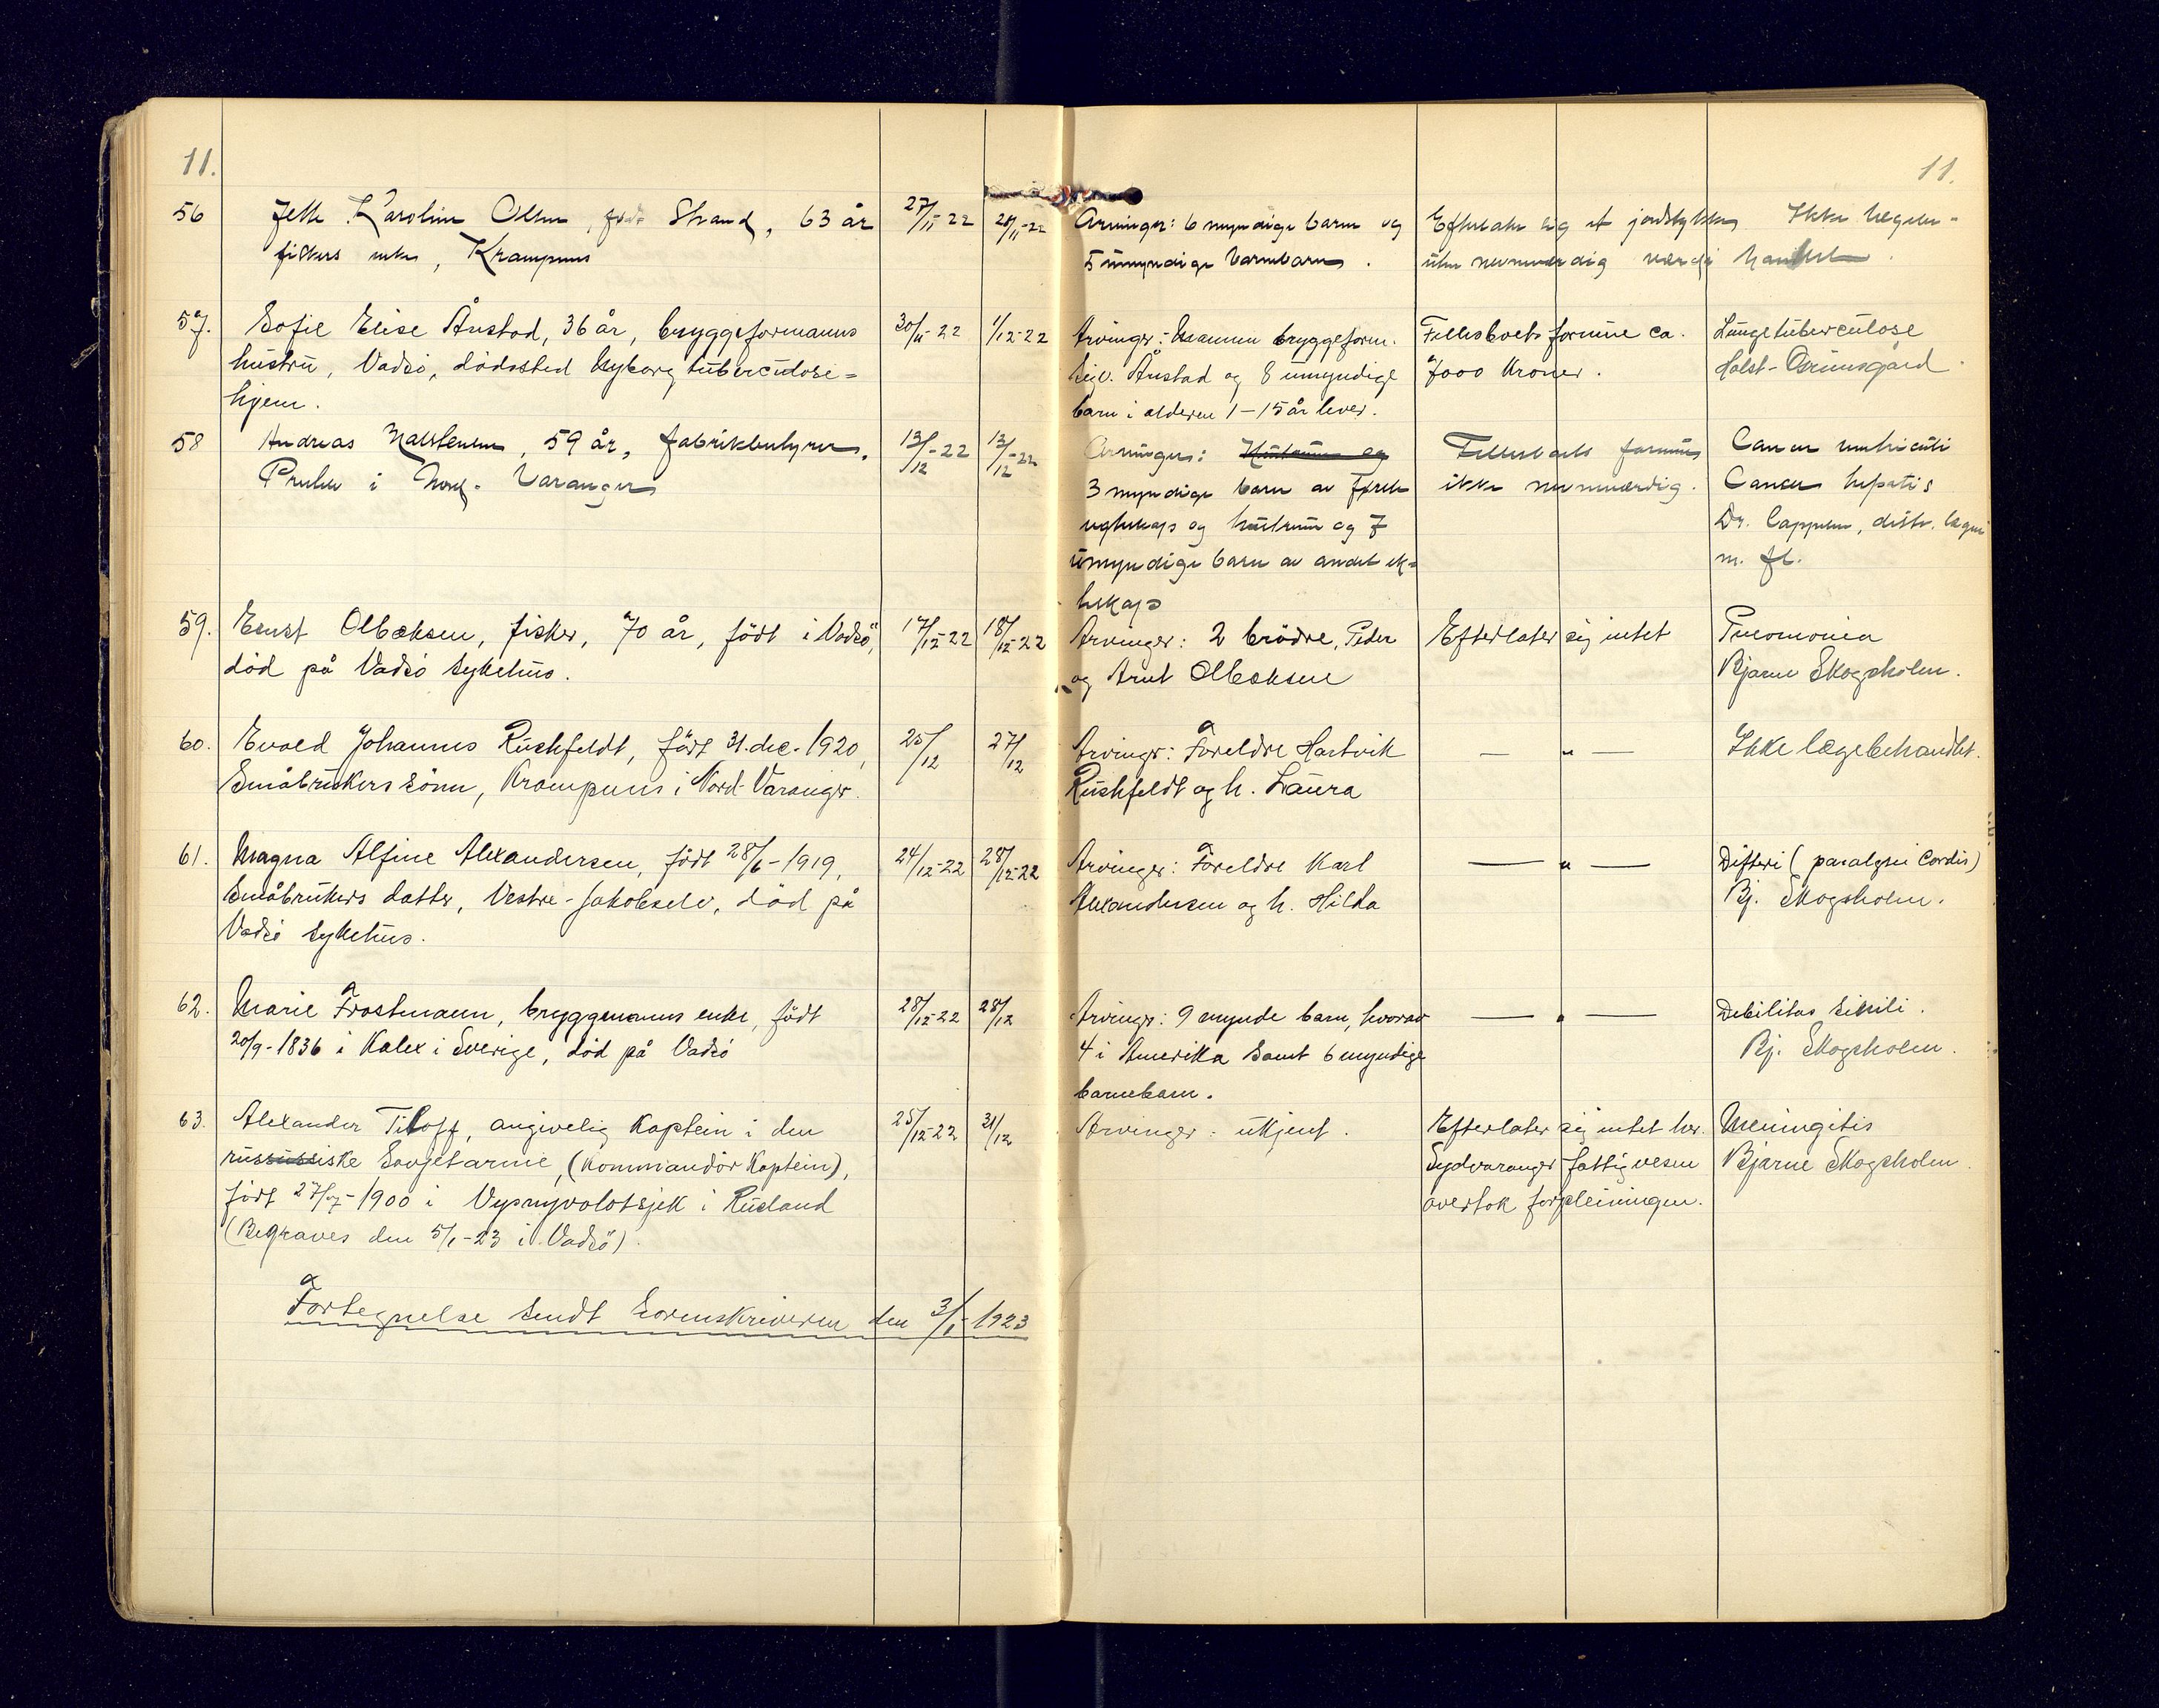 11.
56 Jette Karoline Olsen, født Strand, 63 år 27/11-22 28/11-22
fiskers enke, Krampenes
57. Sofie Elise Ånstad, 36 år, bryggeformanns 30/11-22 1/12-22
hustru, Vadsö, dödssted Nyborg tuberculose=
hjem.
58 Andreas 59 år, fabrikbestyrer, 13/12-22 13/12-22
i Nord-Varanger
59. Ernst Olbeksen, fisker, 70 år, födt i Vadsö, 17/12-22 18/12-22
död på Vadsö sykehus.
60. Evald Johannes Rushfeldt, födt 31. dec. 1920, 25/12 27/12
Småbrukers sönn, Krampenes i Nord-Varanger.
61. Magna Alfine Alexandersen, födt 28/6-1919, 24/12-22 28/12-22
Småbrukers datter, Vestre-Jakobselv, död på
Vadsö sykehus.
62. Marie Frostmann, bryggemanns enke, födt 28/12-22 28/12
20/9-1836 i Kalex i Sverige, död på Vadsö
63. Alexander Titoff, angivelig Kaptein i den 25/12-22 31/12
russiske Sovjetarme, (Kommandör Kaptein),
födt 27/7-1900 i Vysnyvolotsjek i Rusland
(Begraves den 5/1-23 i Vadsö).
Fortegnelse sendt Sorenskriveren den 3/1-1923
11.
Arvinger: 6 myndige barn og Efterlater sig et jordstykke Ikke lægebe-
5 umyndige barnebarn. uten nevneværdig værdi handlet.
Arvinger: Mannen bryggeform. Fellesboets formue ca. Lungetuberculose
Sigv. Ånstad og 8 umyndige 7000 Kroner.
barn i alderen 1-15 år lever.
Arvinger: Hustruen og Fellesboets formue Cancer ventriculi
3 myndige barn av første ikke nevneværdig. Cancer hepatis
egteskap og hustruen og 7 Dr. Cappelen, distr. læge
umyndige barn av andet ek= m. fl.
teskap
Arvinger: 2 brödre, Peder Efterlater sig intet Pneomonia
og Arnt Olbeksen Bjarne Skogsholm.
Arvinger: Foreldre Hartvik — " — Ikke lægebehandlet.
Rushfeldt og h. Laura
Arvinger: Foreldre Karl — " — Difteri (paralysi Cordis)
Alexandersen og h. Hilda Bj. Skogsholm.
Arvinger: 9 mynde barn, hvorav — " — Debilitas senili.
4 i Amerika samt 6 myndige Bj. Skogsholm.
barnebarn.
Arvinger: ukjent. Efterlater sig intet her. Meningitis
Sydvaranger fattigvesen Bjarne Skogsholm.
overtok forpleiningen.